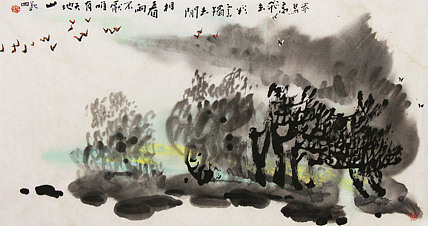 衆鳥高飛孤雲獨去閒相看兩不厭唯有天地山